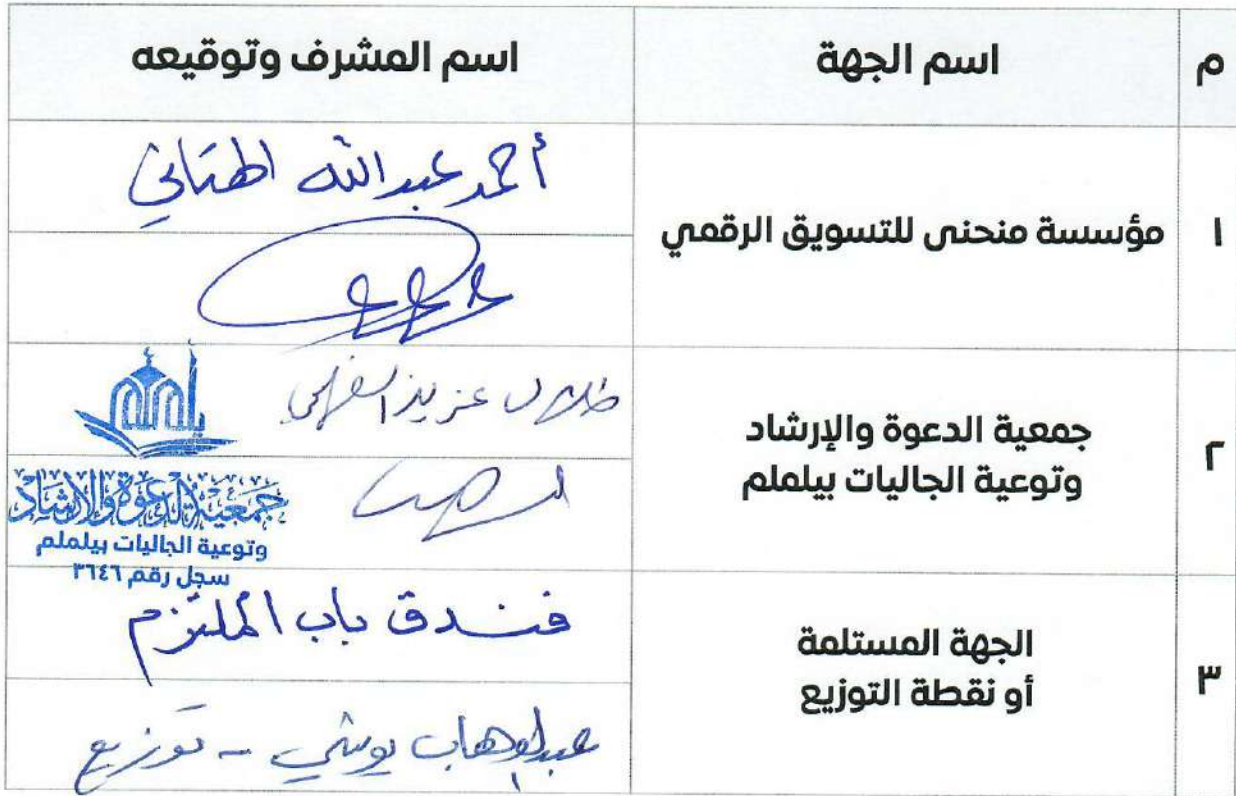 م
اسم الجهة
اسم المشرف وتوقيعه
١
مؤسسة منحنى للتسويق الرقمي
أحمد عبدالله
٢
جمعية الدعوة والإرشاد
وتوعية الجاليات بيلملم
طلال عزيز
يلملم
جمعية الدعوة والإرشاد
وتوعية الجاليات بيلملم
سجل رقم ٣٦٤٦
٣
الجهة المستلمة
أو نقطة التوزيع
فندق باب الملتزم
عبدالوهاب - توزيع